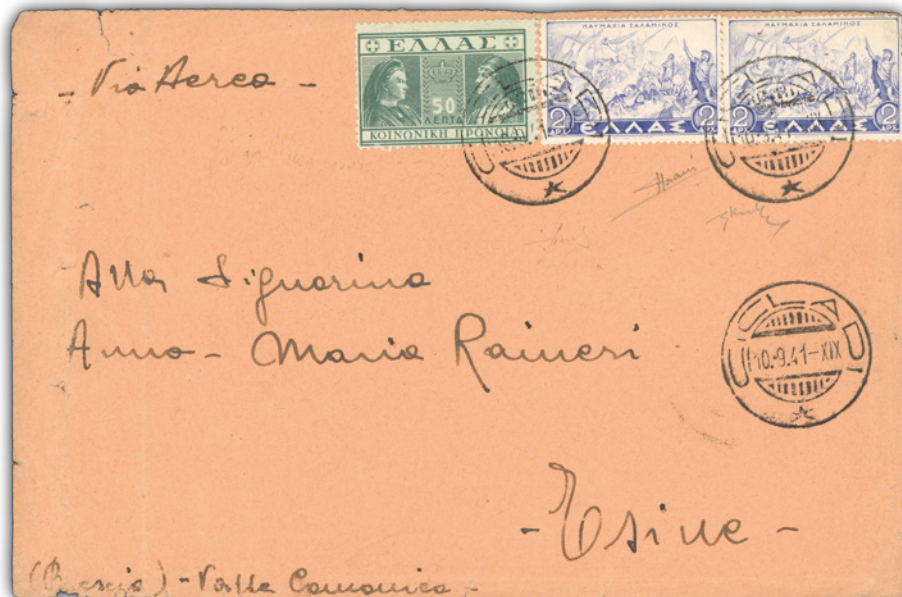 - Via Aerea -
ΕΛΛΑΣ
50
ΛΕΠΤΑ
ΚΟΙΝΩΝΙΚΗ ΠΡΟΝΟΙΑ
ΝΑΥΜΑΧΙΑ ΣΑΛΑΜΙΝΟΣ
2 ΔΡΧ ΕΛΛΑΣ 2
ΝΑΥΜΑΧΙΑ ΣΑΛΑΜΙΝΟΣ
2 ΔΡΧ ΕΛΛΑΣ 2
Alla Signorina
Anna - Maria Raineri
10.9.41-XIX
- Esine -
(Brescia) - Valle Camonica -